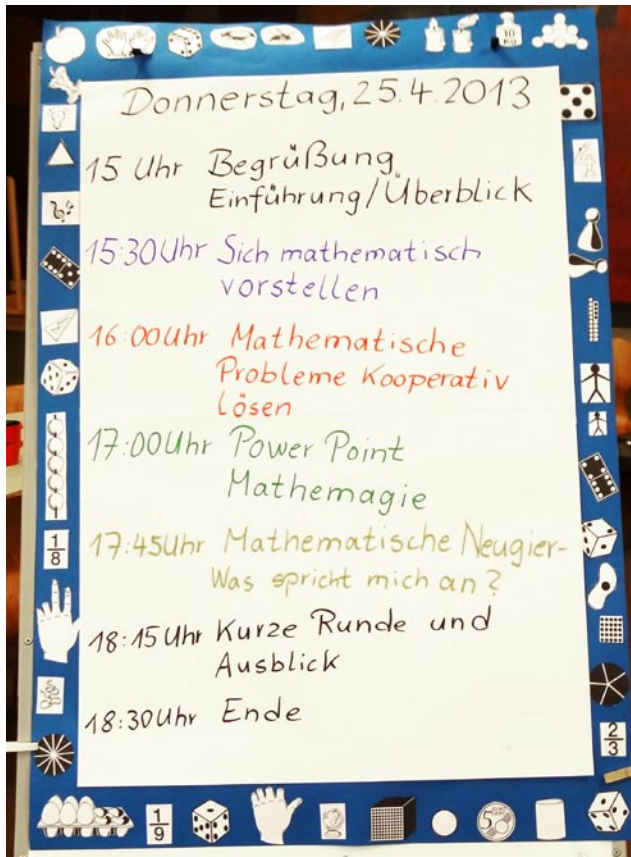 10
KG
Donnerstag, 25.4.2013
15 Uhr Begrüßung
Einführung/Überblick
15:30 Uhr Sich mathematisch
vorstellen
16:00 Uhr Mathematische
Probleme Kooperativ
lösen
17:00 Uhr Power Point
Mathemagie
17:45 Uhr Mathematische Neugier-
Was spricht mich an?
18:15 Uhr Kurze Runde und
Ausblick
18:30 Uhr Ende
1/8
2/3
1/9
50